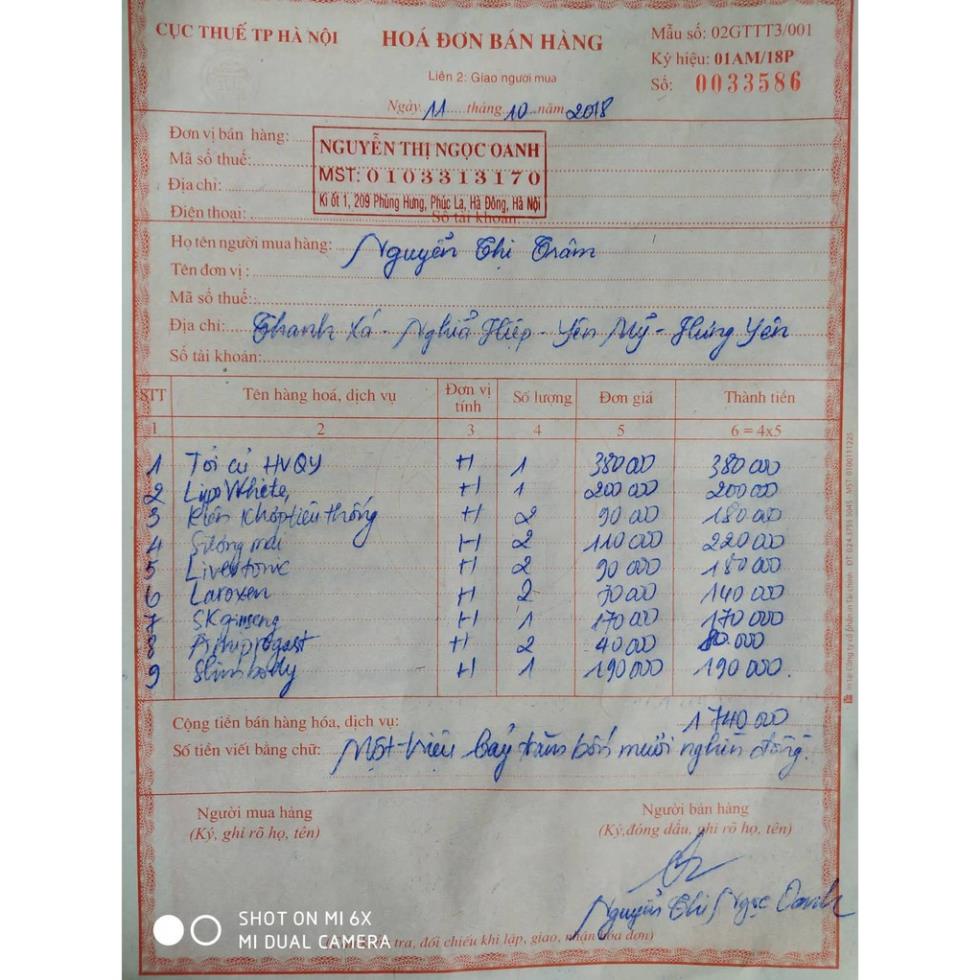 CỤC THUẾ TP HÀ NỘI
HOÁ ĐƠN BÁN HÀNG
Mẫu số: 02GTTT3/001
Ký hiệu: 01AM/18P
Liên 2: Giao người mua
Số: 0033586
Ngày 11 tháng 10 năm 2018
Đơn vị bán hàng:
NGUYỄN THỊ NGỌC OANH
Mã số thuế:
MST: 0103313170
Địa chỉ:
Ki ốt 1, 209 Phùng Hưng, Phúc La, Hà Đông, Hà Nội
Điện thoại: Số tài khoản:
Họ tên người mua hàng: Nguyễn Thị Trâm
Tên đơn vị:
Mã số thuế:
Địa chỉ: Thanh Xá - Nghĩa Hiệp - Yên Mỹ - Hưng Yên
Số tài khoản:
STT Tên hàng hoá, dịch vụ Đơn vị tính Số lượng Đơn giá Thành tiền
1 2 3 4 5 6 = 4x5
1 Tỏi củ HVQY H 1 380 000 380 000
2 Lipo White H 1 200 000 200 000
3 Kiện Khớp tiêu thống H 2 90 000 180 000
4 H 2 110 000 220 000
5 Livertonic H 2 90 000 180 000
6 Laroxen H 2 70 000 140 000
7 SK ginseng H 1 170 000 170 000
8 H 2 40 000 80.000
9 Slim body H 1 190 000 190 000.
Cộng tiền bán hàng hóa, dịch vụ: 1 740 000
Số tiền viết bằng chữ: Một triệu bảy trăm bốn mươi nghìn đồng.
Người mua hàng
(Ký, ghi rõ họ, tên)
Người bán hàng
(Ký,đóng dấu, ghi rõ họ, tên)
Nguyễn Thị Ngọc Oanh
tra, đối chiếu khi lập, giao, nhận hóa đơn)
SHOT ON MI 6X
MI DUAL CAMERA